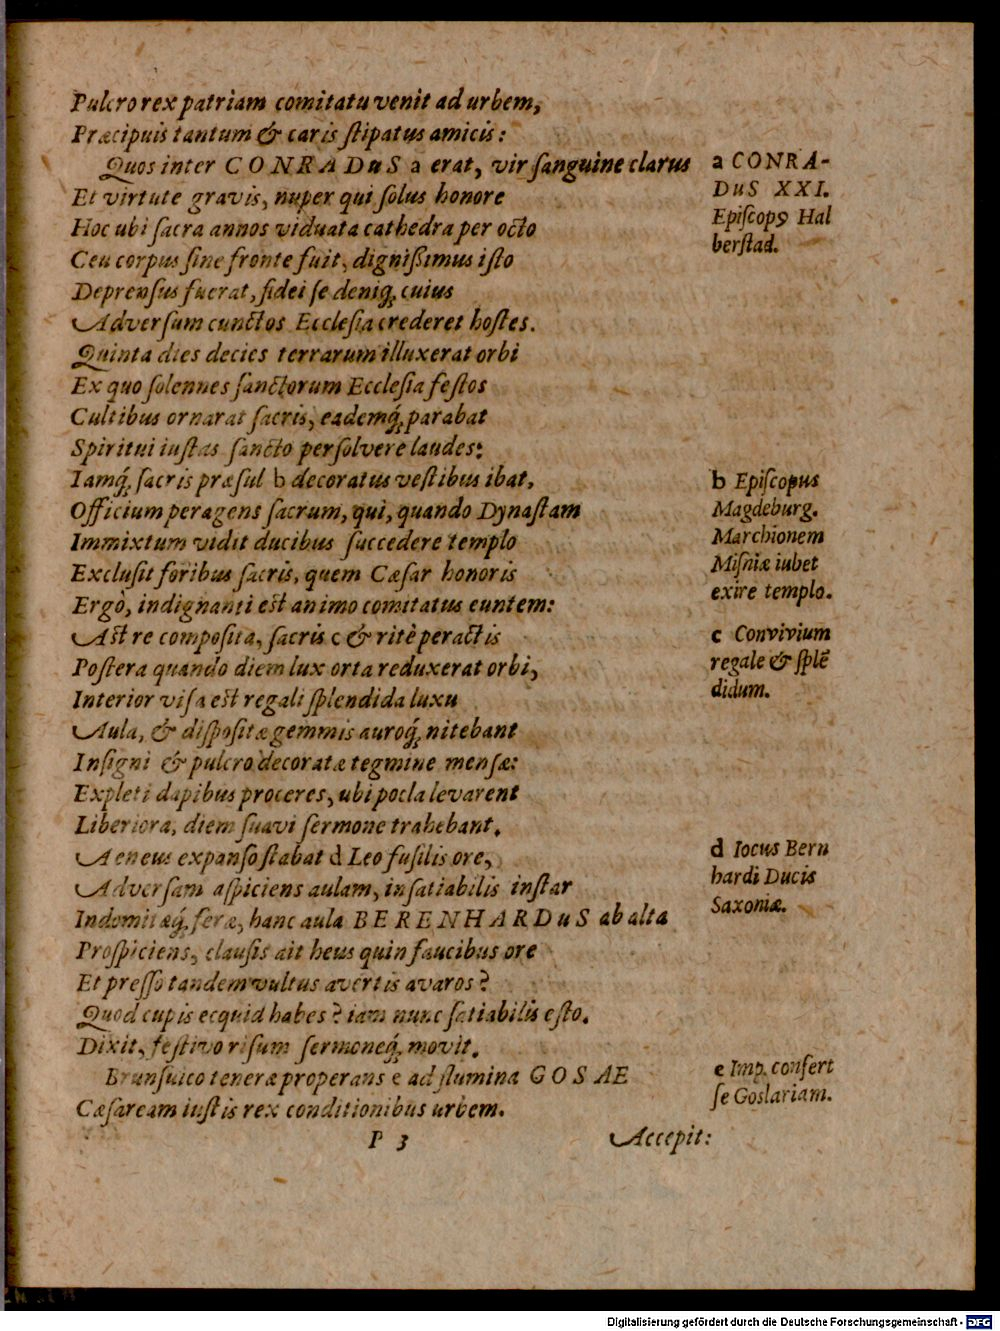 Pulcro rex patriam comitatu venit ad urbem,
Præcipuis tantum & caris ſtipatus amicis:
Quos inter CONRADuS a erat, vir ſanguine clarus
Et virtute gravis, nuper qui ſolus honore
Hoc ubi ſacra annos viduata cathedra per octo
Ceu corpus ſine fronte fuit, digniſſimus iſto
Deprenſus fuerat, fidei ſe deniq́; cuius
Adverſum cunctos Eccleſia crederet hoſtes.
Quinta dies decies terrarum illuxerat orbi
Ex quo ſolennes ſanctorum Eccleſia feſtos
Cultibus ornarat ſacris, eademq́; parabat
Spiritui iuſtas ſancto perſolvere laudes:
Iamq́; ſacris præſul b decoratus veſtibus ibat,
Officium peragens ſacrum, qui, quando Dynaſtam
Immixtum vidit ducibus ſuccedere templo
Excluſit foribus ſacris, quem Cæſar honoris
Ergò, indignanti eſt animo comitatus euntem:
Aſt re compoſita, ſacris c & ritè peractis
Poſtera quando diem lux orta reduxerat orbi,
Interior viſa eſt regali ſplendida luxu
Aula, & diſpoſitæ gemmis auroq́; nitebant
Inſigni & pulcro decoratæ tegmine menſæ:
Expleti dapibus proceres, ubi pocla levarent
Liberiora, diem ſuavi ſermone trahebant.
Aeneus expanſo ſtabat d Leo fuſilis ore,
Adverſam aſpiciens aulam, inſatiabilis inſtar
Indomitæq́; feræ, hanc aula BERENHARDuS ab alta
Proſpiciens, clauſis ait heus quin faucibus ore
Et preſſo tandem vultus avertis avaros?
Quod cupis ecquid habes? iam nunc ſatiabilis eſto.
Dixit, feſtivo riſum ſermoneq́; movit.
Brunſuico teneræ properans e ad flumina GOSAE
Cæſaream iuſtis rex conditionibus urbem.
P 3
Accepit:
a CONRA-
DuS XXI.
Epiſcopꝰ Hal
berſtad.
b Epiſcopus
Magdeburg.
Marchionem
Miſniæ iubet
exire templo.
c Convivium
regale & ſplẽ
didum.
d Iocus Bern
hardi Ducis
Saxoniæ.
e Imp. confert
ſe Goslariam.
Digitalisierung gefördert durch die Deutsche Forschungsgemeinschaft - DFG